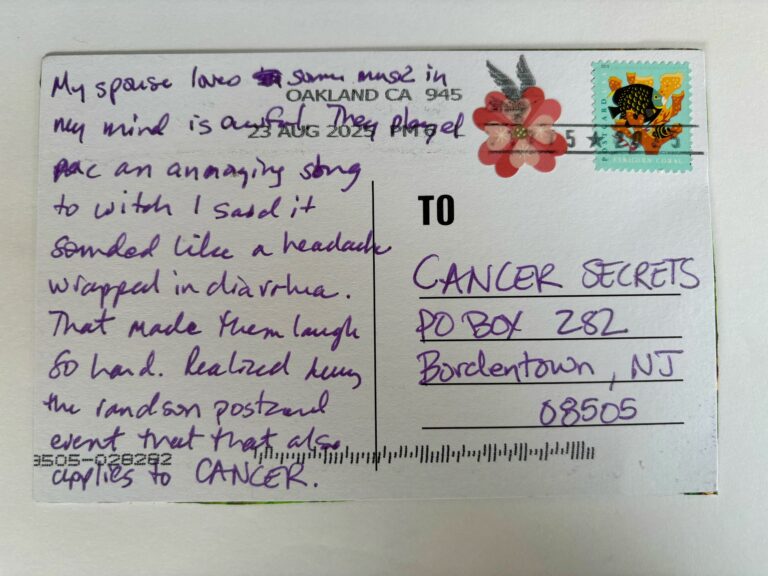 My spouse loves some music in
my mind is awful. They played
an annoying song
to witch I said it
sounded like a headache
wrapped in diarrhea.
That made them laugh
so hard. Realized
the postcard
event that that also
applies to CANCER.
OAKLAND CA 945
23 AUG 2025 PM 6 L
TO
CANCER SECRETS
PO BOX 282
Bordentown, NJ
08505
ELKHORN CORAL